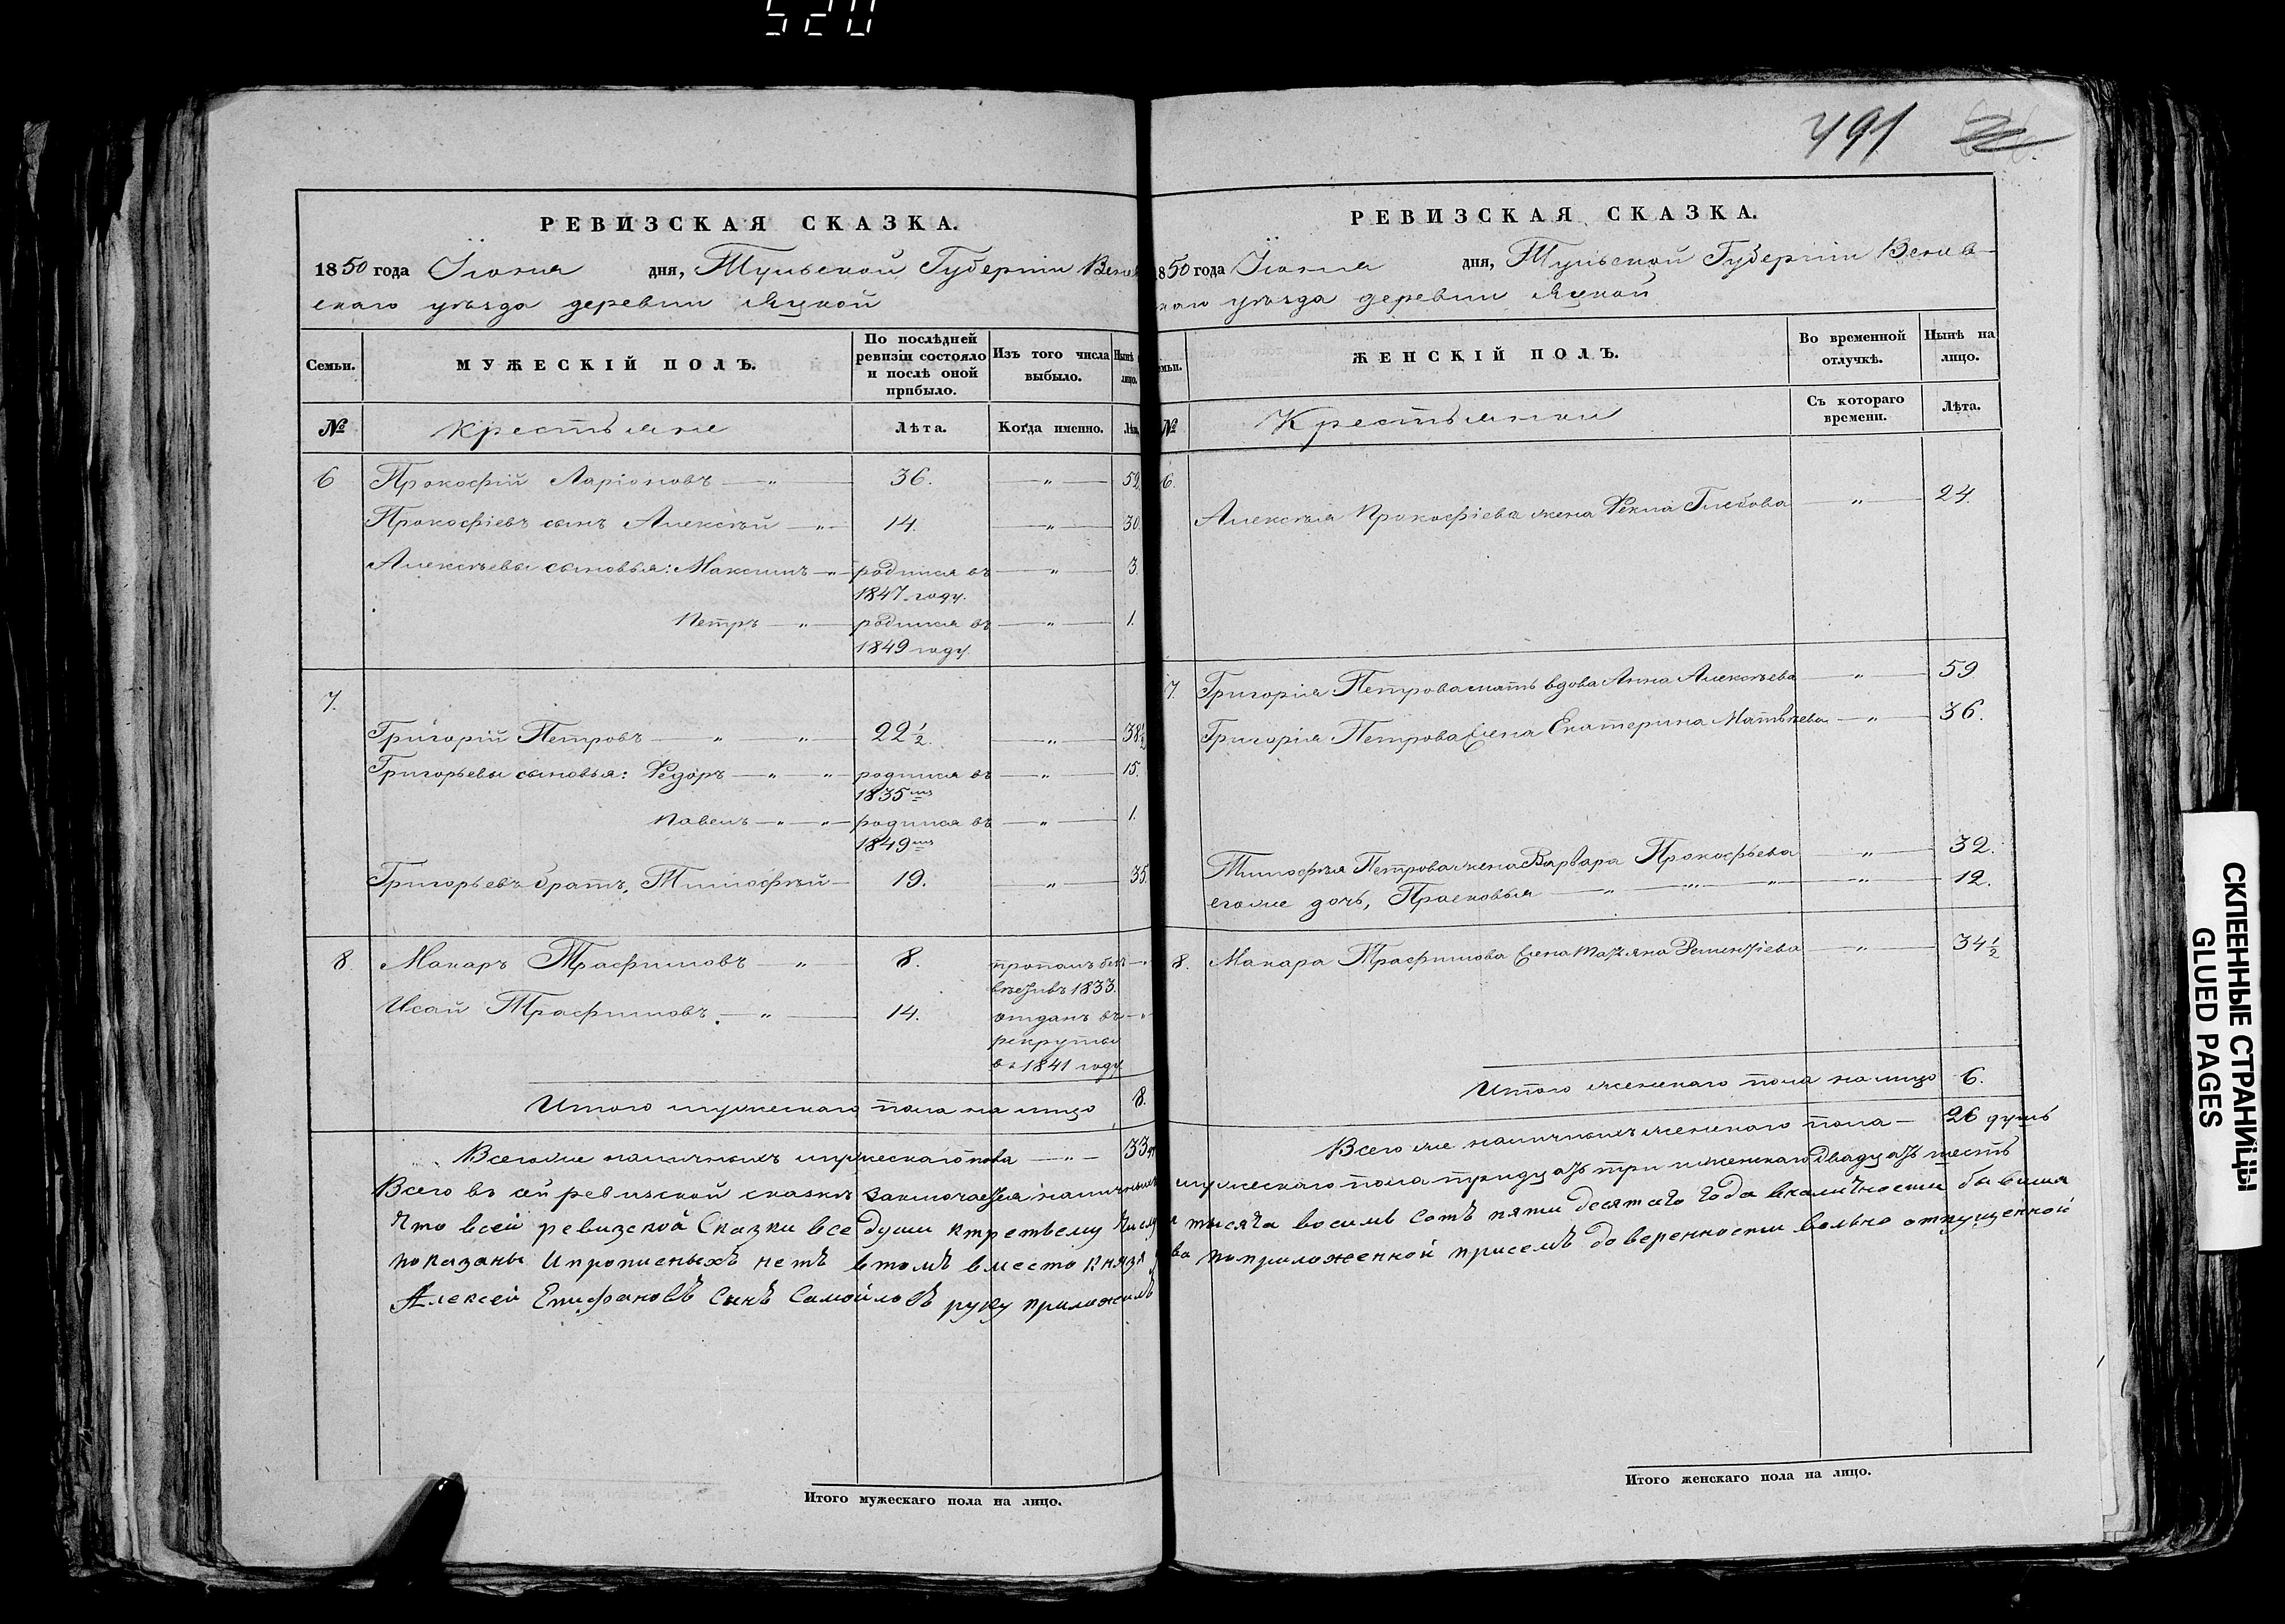 520
491
РЕВИЗСКАЯ СКАЗКА.
1850 года Іюня дня, Тульской Губерніи Венев
скаго уѣзда деревни Яцкой
Семьи.
МУЖЕСКІЙ ПОЛЪ.
По послѣдней ревизіи состояло и послѣ оной прибыло.
Изъ того числа выбыло.
Нынѣ лицо.
№
Крестьяне
Лѣта.
Когда именно.
Лѣта
6 Прокофій Ларіоновъ — „ 36. — „ — 52.
Прокофіевъ сынъ Алексѣй — „ — 14. — „ — 30.
Алексѣевы сыновья: Максимъ — „ — родился въ — „ — 3.
1847 году.
Петръ — „ — родился въ — „ — 1.
1849 году.
7.
Григорій Петровъ — „ — „ — 22 1/2. — „ — 38 1/2
Григорьевы сыновья: Ѳедоръ — „ — „ — родился въ — „ — 15.
1835мъ
Павелъ — „ — „ — родился въ — „ — 1.
1849мъ
Григорьевъ братъ, Тимофѣй — 19. — „ — 35.
8. Макаръ Трофимовъ — „ — 8. пропалъ безъ — „
вѣсти въ 1833.
Исай Трофимовъ — „ — 14. отданъ въ — „
рекруты
въ 1841 году
Итого мужескаго пола на лицо 8.
Всего же наличныхъ мужескаго пола — „ — 33
РЕВИЗСКАЯ СКАЗКА.
850 года Іюня дня, Тульской Губерніи Венев-
скаго уѣзда деревни Яцкой
мьи.
ЖЕНСКІЙ ПОЛЪ.
Во временной отлучкѣ.
Нынѣ на лицо.
№
Крестьянки
Съ котораго времени.
Лѣта.
6.
Алексѣя Прокофіева жена Ѳекла Глебова — „ — 24.
7. Григорія Петрова мать вдова Анна Алексѣева — „ — 59
Григорія Петрова жена Екатерина Матвѣева — „ — 36.
Тимофѣя Петрова жена Варвара Прокофьева — „ — 32.
его же дочь, Прасковья — „ — „ — „ — „ — 12.
8. Макара Трофимова жена Татьяна — „ — 34 1/2
Итого женскаго пола на лицо 6.
Всего же наличныхъ женскаго пола — 26 душъ
Всего въ сей ревизской сказкѣ заключается наличныхъ мужескаго пола тридцать три и женскаго двадцать шесть
Что всей ревизской Сказки все души ктретьему числу тысяча восимь сотъ пяти десятаго года вналичности бывшия
показаны ипрописныхъ нетъ втомъ вместо князя поприложенной присемъ доверенности вольно отпущенной
Алексей Епифановъ Сынъ Самойловъ руку приложилъ
Итого мужескаго пола на лицо.
Итого женскаго пола на лицо.
СКЛЕЕННЫЕ СТРАНИЦЫ
GLUED PAGES